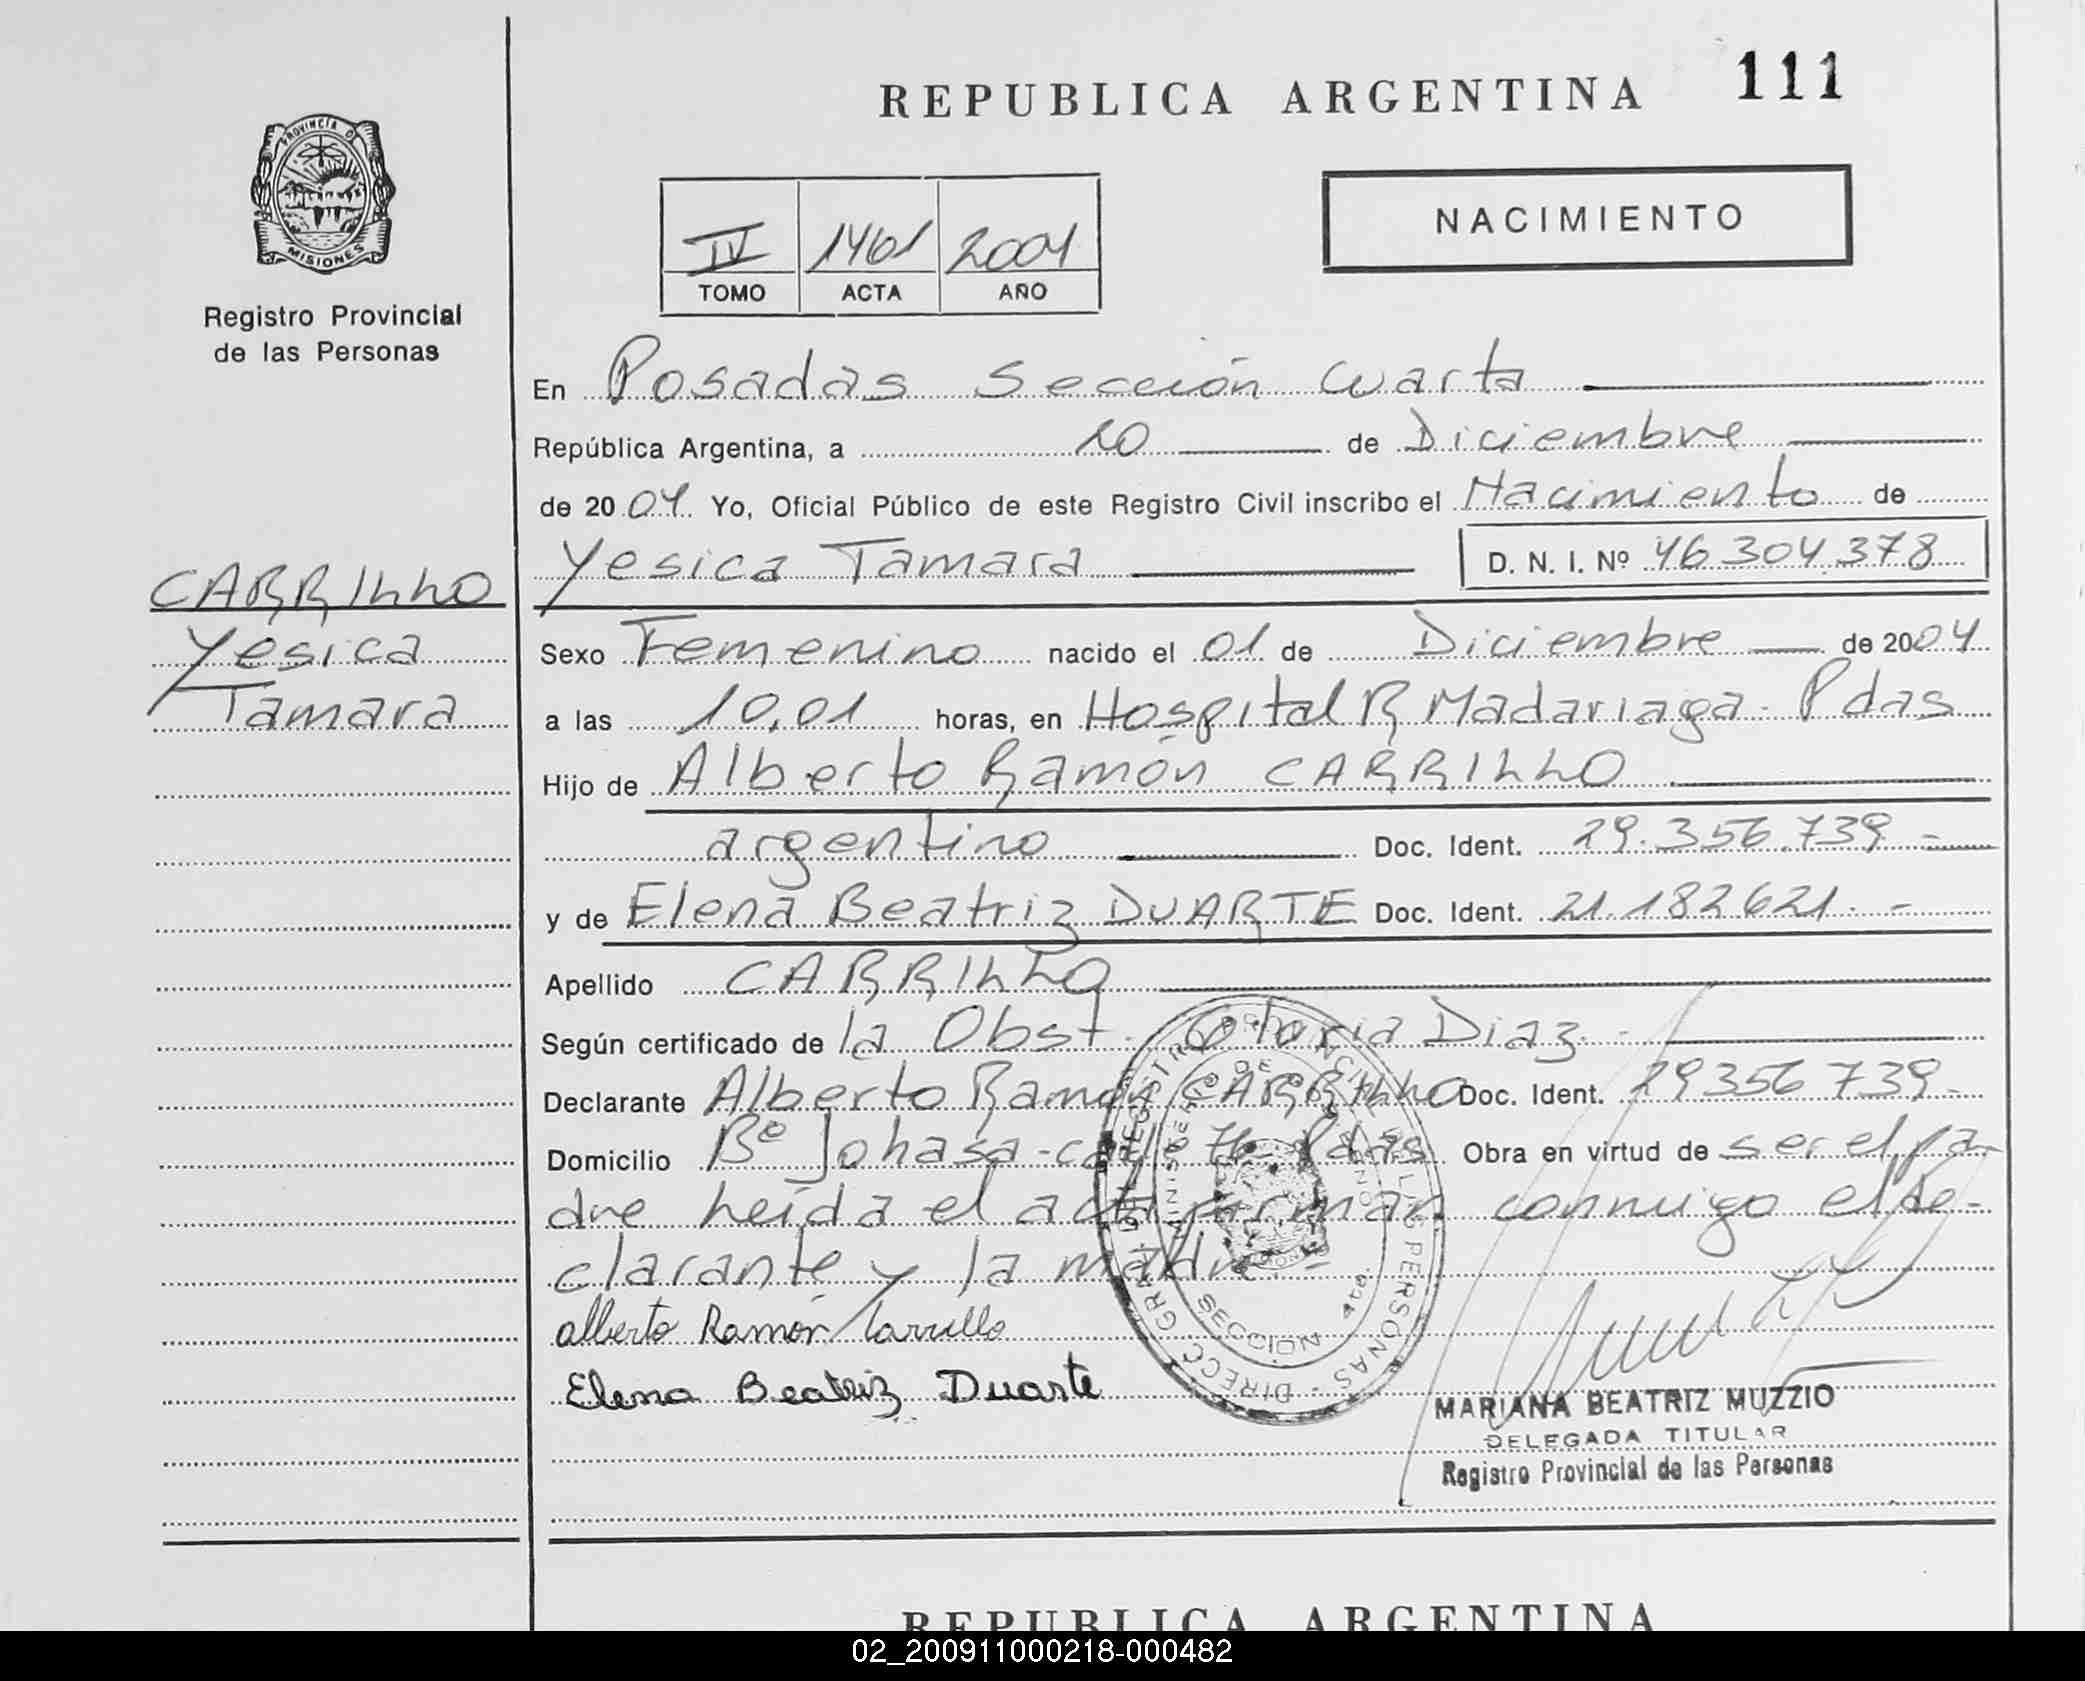 REPUBLICA ARGENTINA 111
PROVINCIA DE
MISIONES
Registro Provincial
de las Personas
IV 1461 2004
TOMO ACTA AÑO
NACIMIENTO
En Posadas Sección Cuarta
República Argentina, a 10 de Diciembre
de 2004 Yo, Oficial Público de este Registro Civil inscribo el Nacimiento de
Yesica Tamara D. N. I. Nº 46.304.378
CARRILLO
Yesica
Tamara
Sexo Femenino nacido el 01 de Diciembre de 2004
a las 10,01 horas, en Hospital R Madariaga - Pdas
Hijo de Alberto Ramón CARRILLO
argentino Doc. Ident. 29.356.739.-
y de Elena Beatriz DUARTE Doc. Ident. 21.182621.-
Apellido CARRILLO
Según certificado de la Obst. Gloria Diaz.-
Declarante Alberto Ramón CARRILLO Doc. Ident. 29356739-
Domicilio Bº Johasa - calle Pdas Obra en virtud de ser el pa-
dre Leída el acta firman conmigo el de-
clarante y la madre-
Alberto Ramón Carrillo
Elena Beatriz Duarte
SECCION 4ta.
MARIANA BEATRIZ MUZZIO
DELEGADA TITULAR
Registro Provincial de las Personas
REPUBLICA ARGENTINA
02_200911000218-000482